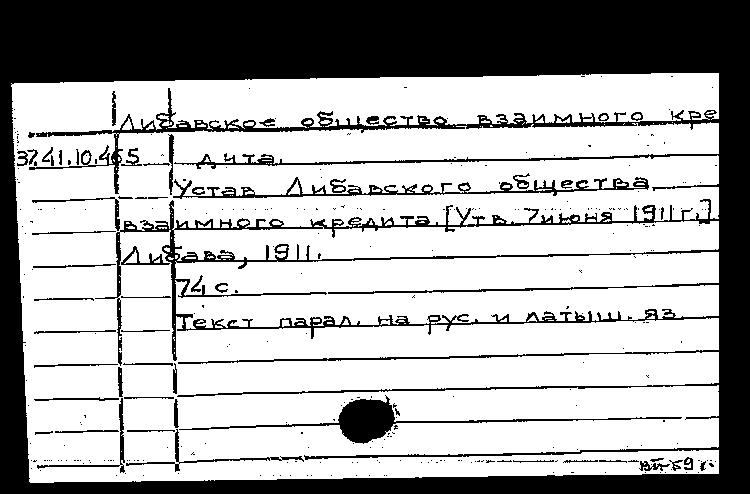 Либавское общество взаимного кре
37.41.10.465 дита.
Устав Либавского общества
взаимного кредита.[Утв. 7 июня 1911 г.]
Либава, 1911.
74 с.
Текст парал. на рус. и латыш. яз.